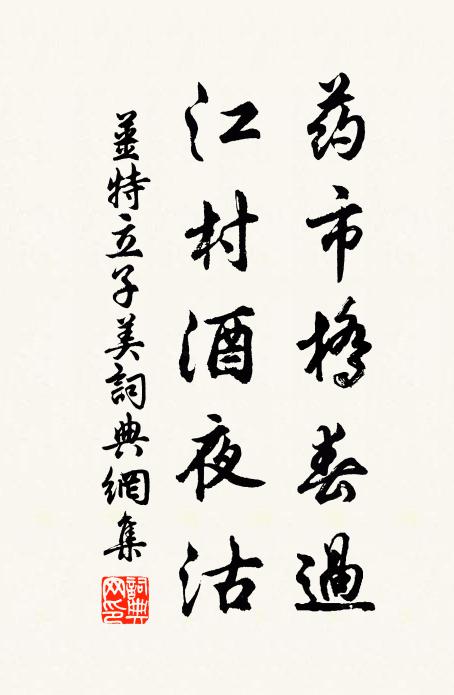 药市橋春過
江村酒夜沽
薑特立子美詞典網集
詞典网印